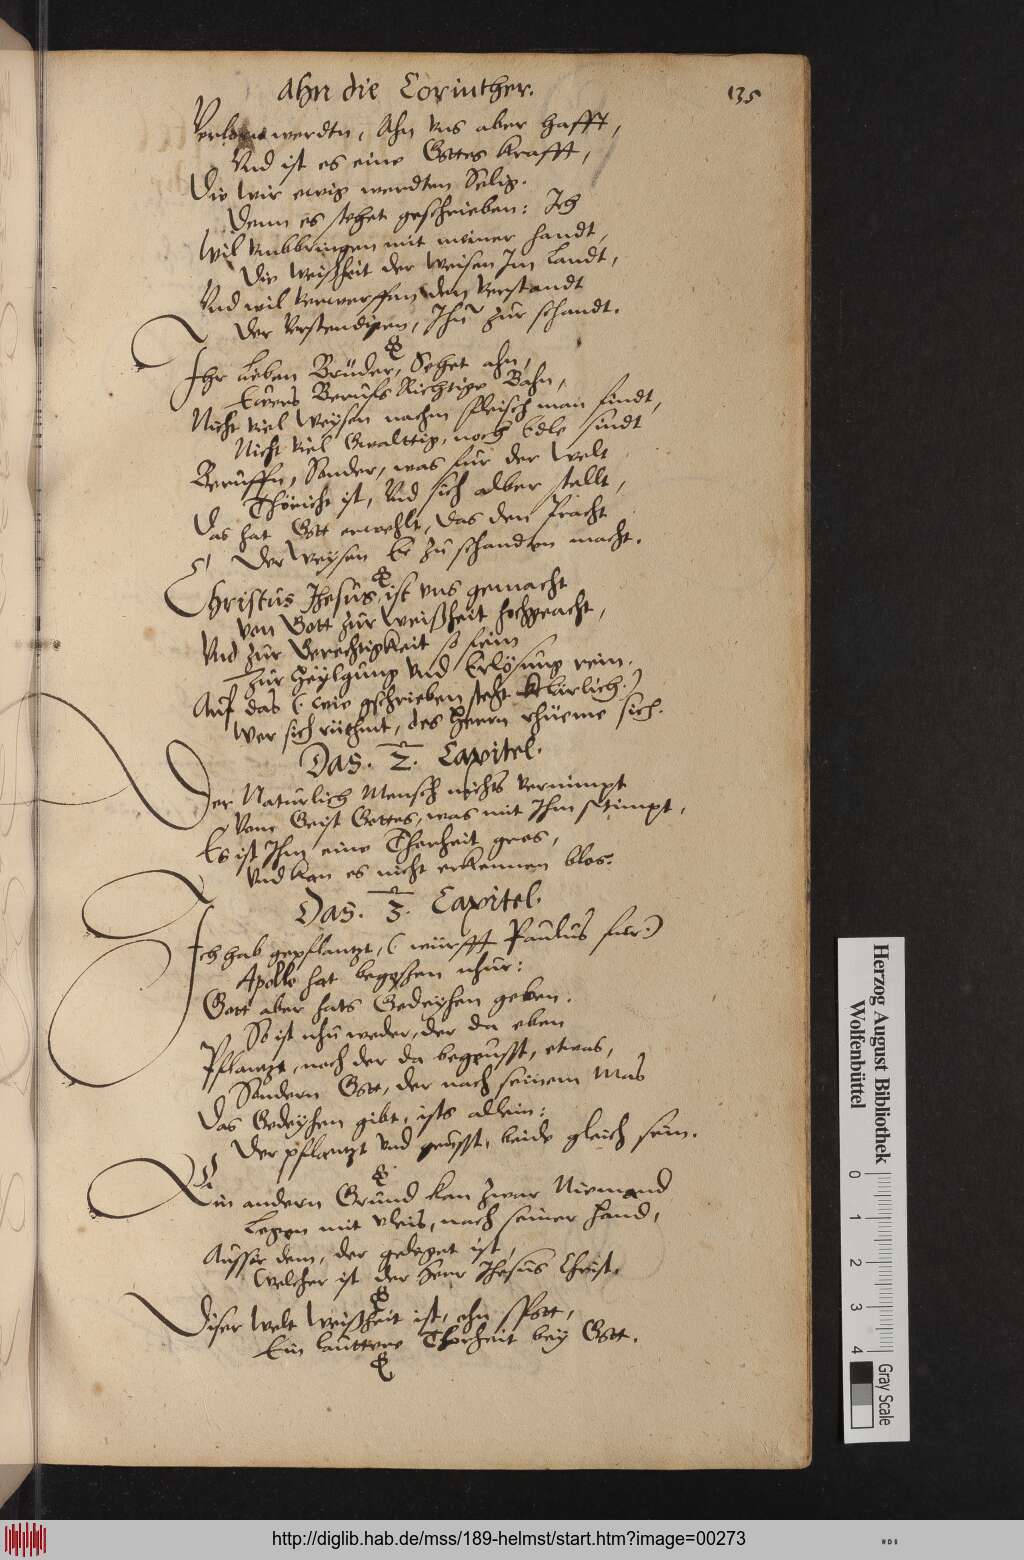 Ahn die Corinther.
135
Verlorn werdtn, Ahn uns aber hafft,
Und ist es eine Gottes krafft,
Die wir ewig werdten Selig.
Denn es stehet geschrieben: Ich
Wil umbbringen mit meiner handt,
Die Weißheit der Weisen Im Landt,
Und wil verwerffen den verstandt
Der Verstendigen, Ihn zur schandt.
Ihr Lieben Brüder, Sehet ahn,
Ewers Berufs Richtige Bahn,
Nicht viel Weysen nachm fleisch man findt,
Nicht viel Gwalttig, noch Edle sindt
Beruffn, Sonder, was für der Welt
Thöricht ist, Und sich alber stellt,
Das hat Gott erwehlt, Das den Pracht
Der Weysen Er zu schanden macht.
Christus Jhesus, ist uns gemacht
von Gott zur Weißheit hochgeacht,
Und zur Gerechtigkeit so fein
Zur Heylgung und Erlösung rein.
Auf das (: wie gschrieben steht klärlich:)
Wer sich rühmt, des Herrn rhüeme sich.
Das. 2. Capitel.
Der Naturlich Mensch nichts vernimpt
Vom Geist Gottes, was mit Ihm stimpt,
Es ist Ihm eine Thorheit gros,
Und kan es nicht erkennen blos.
Das. 3. Capitel.
Ich hab gepflantzt, (: würfft Paulus fur:)
Apollo hat begossen nhur:
Gott aber hats Gedeyhen geben.
So ist nhu weder, der da eben
Pflantzt, noch der da begeusst, etwas,
Sondern Gott, der nach seinem Mas
Das Gedeyhen gibt, ists allein:
Der pflantzt und geusst, beide gleich sein.
Ein andern Grund kan zwar Niemand
Legen mit vleis, nach seiner Hand,
Ausser dem, der geleget ist,
Welcher ist der Herr Jhesus Christ.
Diser Welt Weißheit ist, ohn Spott,
Ein lauttere Thorheit bey Gott.
Herzog August Bibliothek
Wolfenbüttel
0 1 2 3 4
Gray Scale
http://diglib.hab.de/mss/189-helmst/start.htm?image=00273